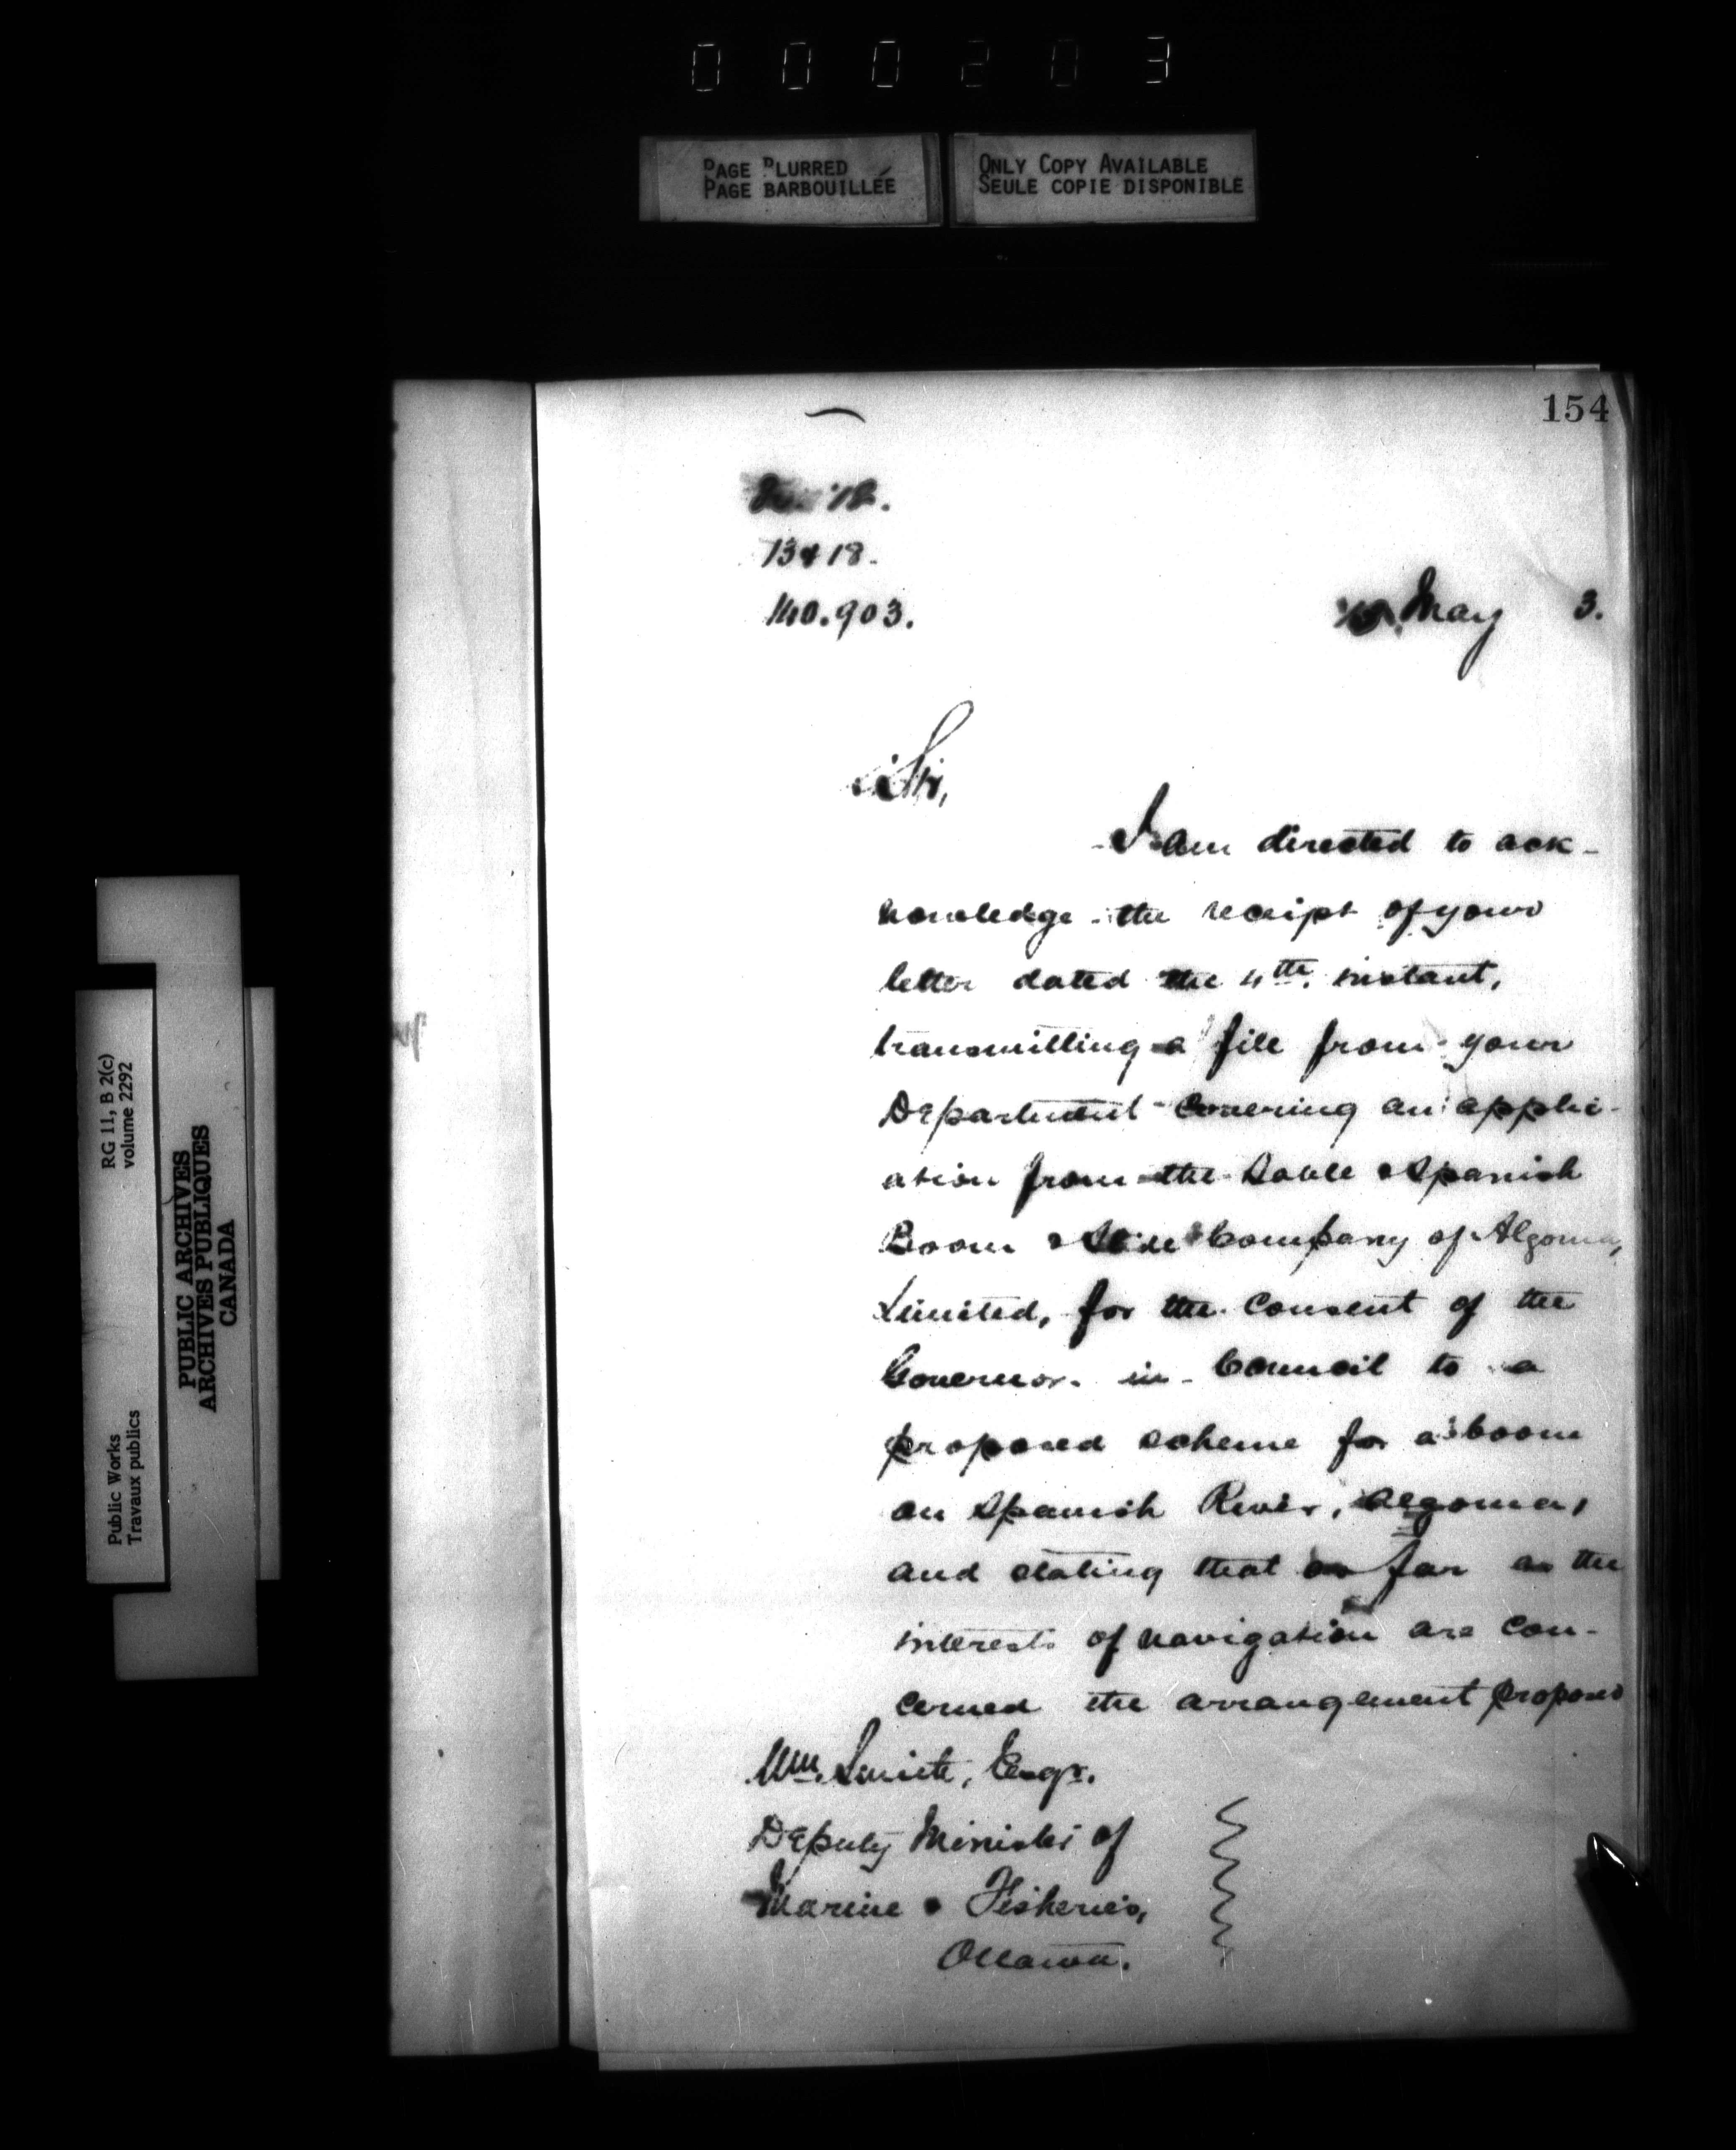 000203
PAGE BLURRED
PAGE BARBOUILLÉE
ONLY COPY AVAILABLE
SEULE COPIE DISPONIBLE
154
13418.
140.903.
May 3.
Sir,
I am directed to ack-
nowledge the receipt of your
letter dated the 4th. instant,
transmitting a file from your
Department covering an appli-
ation from the Sable & Spanish
Boom & Slide Company of Algoma,
Limited, for the consent of the
Governor in Council to a
proposed scheme for a boom
on Spanish River, Algoma,
and stating that as far as the
interests of navigation are con-
cerned the arrangement proposed
Wm. Smith, Esqr.
Deputy Minister of
Marine & Fisheries,
Ottawa.
RG 11, B 2(c)
volume 2292
Public Works
Travaux publics
PUBLIC ARCHIVES
ARCHIVES PUBLIQUES
CANADA